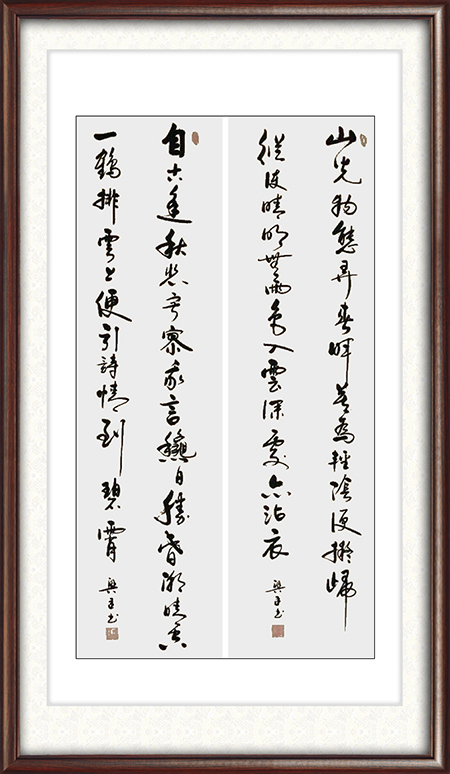 山光物態弄春暉莫為輕陰便擬歸
縱使晴明無雨色入雲深處亦沾衣
自古逢秋悲寂寥我言龝日勝春潮晴空
一鶴排雲上便引詩情到碧霄